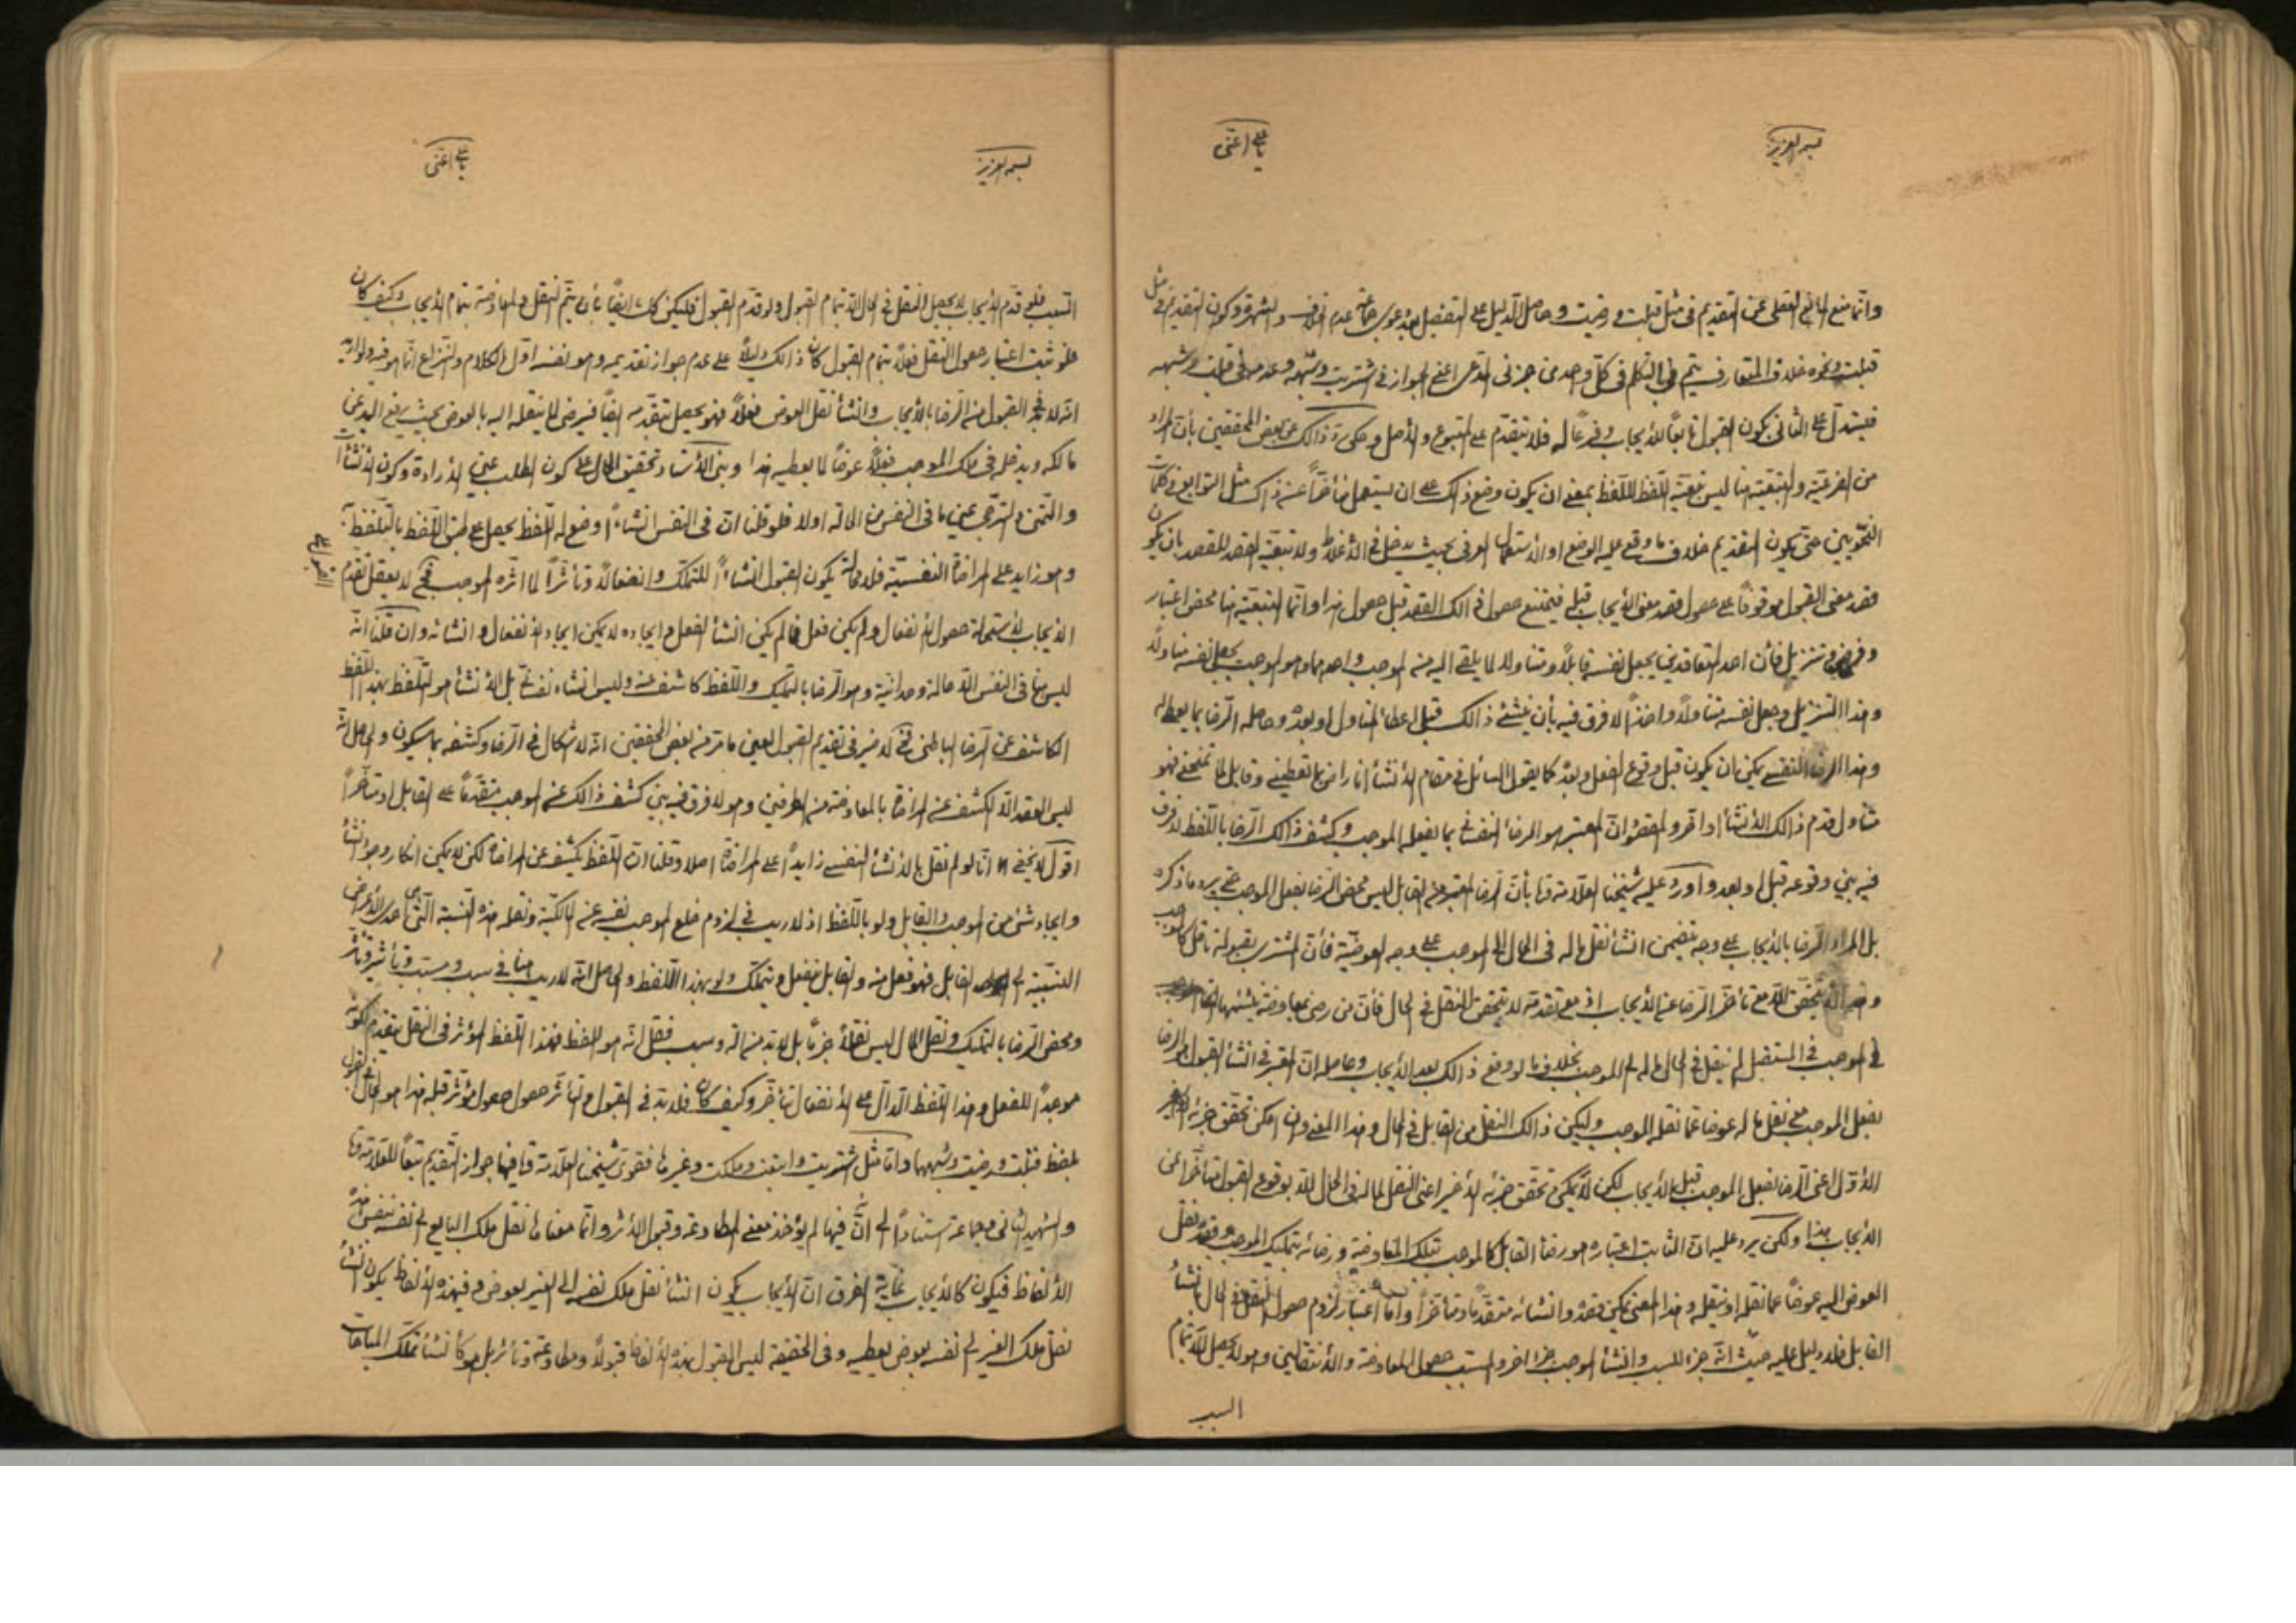 بسمه العزيز
يا علي اغثني
وانما منع المانع العقلي عن التقديم في مثل قبلت ورضيت وحاصل الدليل على التفصيل بعد دعوى عدم الخلاف والشهرة وكون التقديم في مثل
قبلت ونحوه خلاف المتعارف يتم في التكلم في كل واحد من جزئي المدعى اعني الجواز في اشتريت وشبهه وعدمه في قبلت وشبهه
فيستدل على الثاني بكون القبول تابعًا للايجاب وفرعًا له فلا يتقدم على المتبوع والاصل وحكي ذالك عن بعض المحققين بأن المراد
من الفرعية والتبعية هنا ليس تبعية اللفظ للفظ بمعنى ان يكون وضع ذالك على ان يستعمل متأخرًا عنه ذاك مثل التوابع في كلمات
النحويين حتى يكون التقديم خلاف ما وقع عليه الوضع او الاستعمال العرفي بحيث يدخل في الاغلاط ولا تبعية القصد للقصد بان يكون
قصد معنى القبول موقوفًا على حصول قصد معنى الايجاب قبله فيمتنع حصول ذالك القصد قبل حصول هذا وانما التبعية هنا محض اعتبار
وفرض وتنزيل فأن احد المتعاقدين يجعل نفسه قابلًا ومتناولا لما يلقى اليه من الموجب والاخر وهو الموجب يجعل نفسه مناولًا
وهذا التنزيل وجعل نفسه متناولًا واخذًا لا فرق فيه بأن ينشئ ذالك قبل اعطاء المناول او بعده وحاصله الرضا بما يعطى له
وهذا الرضاء النفسي يمكن ان يكون قبل وقوع الفعل وبعده كما يقول السائل في مقام الانشأ انا راض بما تعطيني وقابل لما تمنحني فهو
متناول قدم ذالك الانشأ او اخر والمقصود ان المعتبر هو الرضا بما يفعله الموجب وكشف ذالك الرضا باللفظ لا فرق
فيه بين وقوعه قبل او بعد واورد عليه شيخنا العلامة بأن الرضا المعتبر من القابل ليس محض الرضا بفعل الموجب حتى يرد ما ذكره
بل المراد الرضا بالايجاب على وجه يتضمن انشأ نقل ماله في الحال الى الموجب على وجه العوضية فأن المشتري بقبوله ناقل كالموجب
يتحقق الا مع تأخر الرضا عن الايجاب اذ مع تقدمه لا يتحقق النقل في الحال فأن من رضي بمعاوضة ينشئها
الموجب في المستقبل لم ينقل في الحال ماله الى الموجب بخلاف ما لو وقع ذالك بعد الايجاب وحاصله ان المعتبر في انشأ القبول الرضا
بفعل الموجب مع نقل ماله عوضا عما نقله الموجب وليكن ذالك النقل من القابل في الحال وهذا المعنى وان امكن تحقق جزئه
الاول اعني الرضا بفعل الموجب قبل الايجاب لكن لا يمكن تحقق جزئه الاخير اعني النقل لماله في الحال الا بوقوع القبول متأخرًا عن
الايجاب هذا ولكن يرد عليه ان الثابت اعتباره هو رضا القابل كالموجب بتلك المعاوضة ورضائه بتمليك الموجب وقصد نقل
العوض اليه عوضًا عما نقله او ينقله وهذا المعنى يمكن قصده وانشائه متقدمًا ومتأخرًا واما اعتبار لزوم حصول النقل في الحال بانشأ
القابل فلا دليل عليه حيث انه جزء للسبب وانشأ الموجب جزء اخر والمسبب حصول المعاوضة والانتقالين وهو لا يحصل الا بتمام
السبب
بسمه العزيز
يا علي اغثني
السبب فلو قدم الايجاب لا يحصل النقل في الحال الا بتمام القبول ولو قدم القبول فليكن كك ايضًا بأن يتم النقل والمعاوضة بتمام الايجاب وكيف كان
فلو ثبت اعتبار حصول النقل فعلًا بتمام القبول كان ذالك دليلًا على عدم جواز تقديمه وهو نفسه اول الكلام والنزاع انما هو فيه
القبول من الرضا بالايجاب وانشأ نقل العوض فعلًا فهو يحصل بتقدمه ايضًا فيرضى لما ينقله اليه بالعوض بحيث يرفع اليد عن
مالكه ويدخله في ملك الموجب فعلًا عوضًا لما يعطيه هذا وبنى الاستاد تحقيق الحال على كون الطلب عين الارادة وكون الانشأ
والتمني والترجي عين ما في النفس من الحالة اولا فلو قلنا ان في النفس انشاءً وضع له اللفظ يحصل على طبق اللفظ بالتلفظ به
وهو زايد على المراضاة النفسية فلا محالة يكون القبول انشاءً للتملك وانفعالًا وتأثرًا لما اثره الموجب فح لا يعقل تقدم
على
الايجاب لاستحالة حصول الانفعال ولم يكن فعل فما لم يكن انشأ الفعل وايجاده لا يمكن ايجاد الانفعال وانشائه وان قلنا انه
ليس هنا في النفس الا حالة وجدانية وهو الرضا بالتمليك واللفظ كاشف عنه وليس انشاء بل الانشأ هو التلفظ بهذا اللفظ
الكاشف عن الرضا الباطني فح لا ضير في تقديم القبول لعين ما مر من بعض المحققين انه لا اشكال في الرضا وكشفه بما سيكون والحاصل انه
ليس العقد الا الكشف عن المراضاة بالمعاوضة من الطرفين وهو لا فرق فيه بين كشف ذالك عن الموجب متقدمًا على القابل او متأخرًا
اقول لا يخفى انا لو لم نقل بالانشأ النفسي زايدًا على المراضاة اصلا وقلنا ان اللفظ يكشف عن المراضاة لكن لا يمكن انكار وجود انشأ
وايجاد شئ من الموجب والقابل ولو باللفظ اذ لا ريب في لزوم خلع الموجب نفسه عن المالكية ونقله هذه النسبة التي هي احدى الاعراض
النسبية الى القابل فهو فعل منه والقابل ينفعل ويتملك ولو بهذا اللفظ والحاصل انه لا ريب هنا في سبب ومسبب وتأثير وتأثر
ومحض الرضا بالتمليك ونقل المال ليس نقلًا جزمًا بل لا بد من الة وسبب فقل انه هو اللفظ فهذا اللفظ المؤثر في النقل يتقدم لكونه
موجدًا للفعل وهذا اللفظ الدال على الانفعال يتأخر وكيف كان فلا بد في القبول والتأثر حصول المؤثر قبله هذا هو الحال في القبول
بلفظ قبلت ورضيت وشبهها واما مثل اشتريت وابتعت وملكت وغيرها فقوى شيخنا العلامة فيها جواز التقديم تبعًا للعلامة
والشهيد الثاني وجماعة استنادًا الى انّ فيها لم يؤخذ معنى المطاوعة وقبول الاثر وانما معناها نقل ملك البايع الى نفسه بنفس هذه
الالفاظ فيكون كالايجاب غاية الفرق ان الايجاب يكون انشأ نقل ملك نفسه الى الغير بعوض وفي هذه الالفاظ يكون انشأ
نقل ملك الغير الى نفسه بعوض يعطيه وفي الحقيقة ليس القبول بهذه الالفاظ قبولًا ومطاوعة وتأثر بل هو كانشأ تملك المباحات